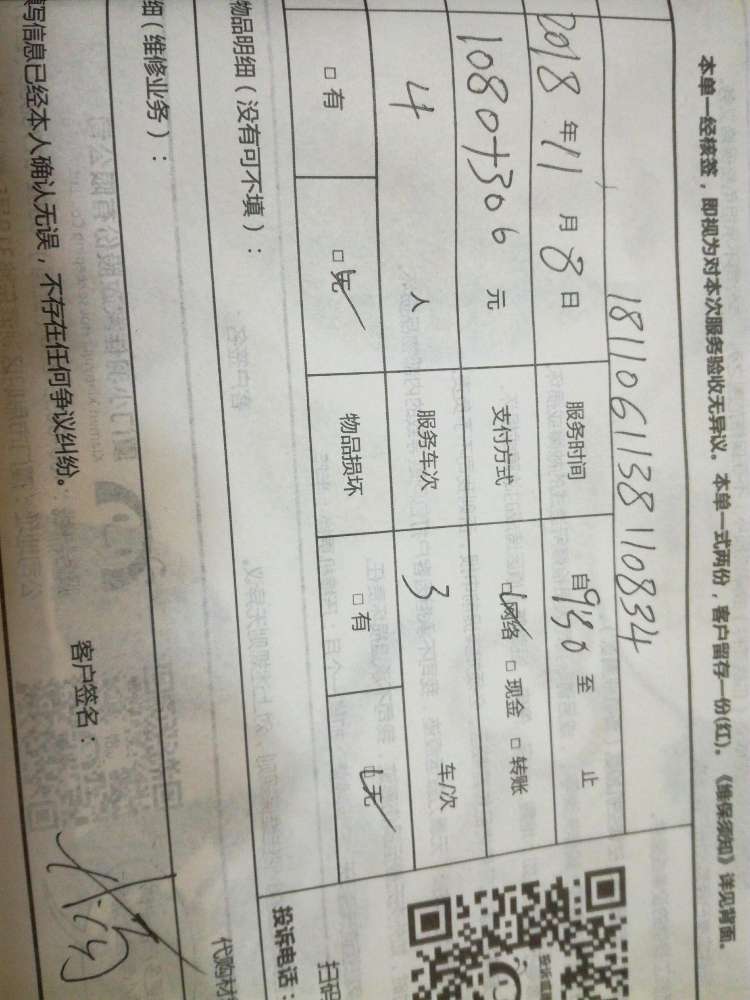 本单一经核签，即视为对本次服务验收无异议。本单一式两份，客户留存一份(红)。《维保须知》详见背面。
1811061138110834
2018年11月8日 服务时间 自930至 止
1080+306元 支付方式 ☑网络 □现金 □转账
4人 服务车次 3 车/次
□有 ☑无 物品损坏 □有 ☑无
物品明细（没有可不填）：
投诉电话：
扫码
代购材
细（维修业务）：
填写信息已经本人确认无误，不存在任何争议纠纷。 客户签名：